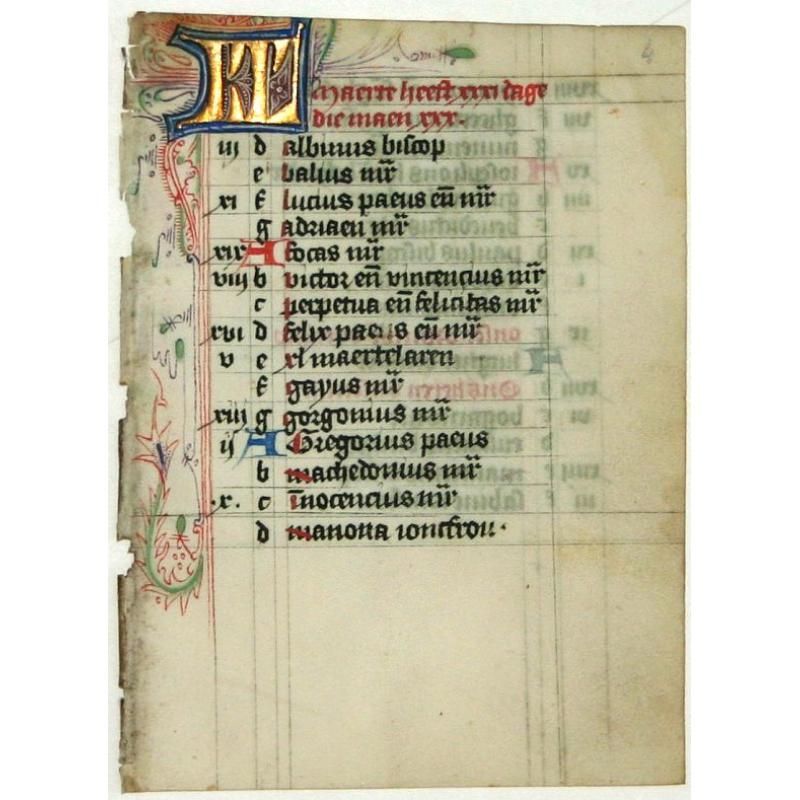 4
KL Maerte heeft xxxi dage
die maen xxx.
iij d albinus biscop
e balius mr̄
xi f lucius paeus en̄ mr̄
g adriaen mr̄
xix A focas mr̄
viij b victor en̄ vincencius mr̄
c perpetua en̄ felicitas mr̄
xvi d felix paeus en̄ mr̄
v e xl maertelaren
f gayus mr̄
xiij g gorgonius mr̄
ij A Gregorius paeus
b machedonius mr̄
.x. c īnocencius mr̄
d manona ioncfrou.